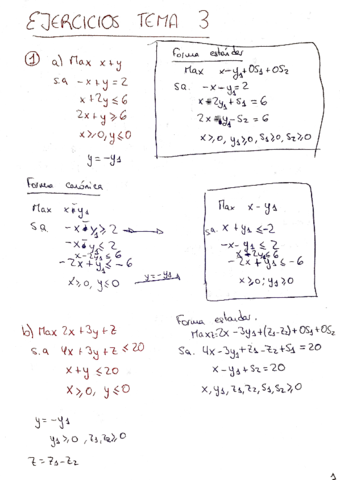 EJERCICIOS TEMA 3
① a) Max x+y
s.a -x+y=2
x+2y≤6
2x+y≥6
x≥0, y≤0
y=-y₁
Forma estándar
Max x-y₁+0S₁+0S₂
s.a. -x-y₁=2
x-2y₁+S₁=6
2x-y₁-S₂=6
x≥0, y₁≥0, S₁≥0, S₂≥0
Forma canónica
Max x-y₁
s.a -x-y₁≥2
-x-y₁≤2
x-2y₁≤6
-2x+y₁≤-6
x≥0, y≤0
y=-y₁
Max x-y₁
s.a. x+y₁≤-2
-x-y₁≤2
x-2y₁≤6
-2x+y₁≤-6
x≥0; y₁≥0
b) Max 2x+3y+z
s.a 4x+3y+z≤20
x+y≤20
x≥0, y≤0
y=-y₁
y₁≥0, z₁,z₂≥0
z=z₁-z₂
Forma estándar.
Max z: 2x-3y₁+(z₁-z₂)+0S₁+0S₂
s.a. 4x-3y₁+z₁-z₂+S₁=20
x-y₁+S₂=20
x,y₁,z₁,z₂,S₁,S₂≥0
1